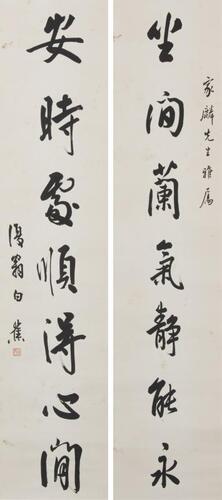 家麟先生雅属
坐間蘭氣靜能永
安時處順得心閒
復翁白蕉